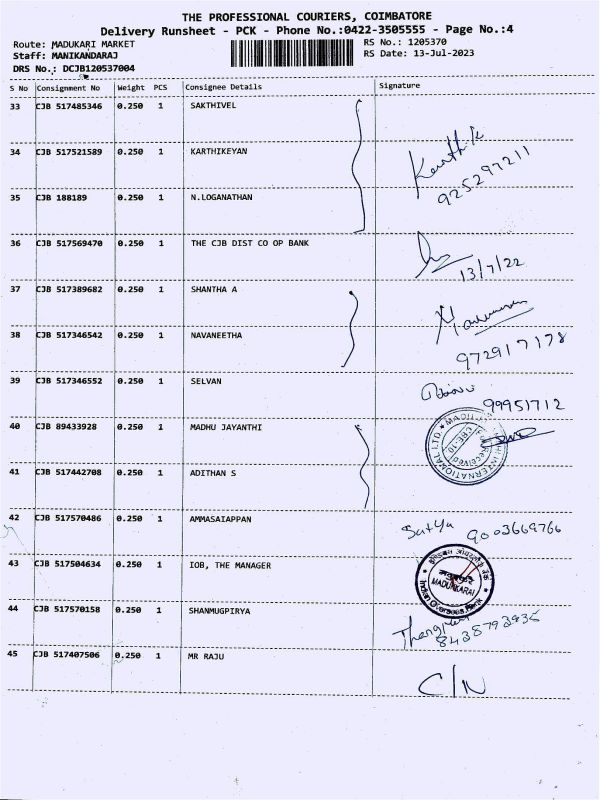 THE PROFESSIONAL COURIERS, COIMBATORE
Delivery Runsheet - PCK - Phone No.:0422-3505555 - Page No.:4
Route: MADUKARI MARKET RS No.: 1205370
Staff: MANIKANDARAJ RS Date: 13-Jul-2023
DRS No.: DCJB120537004
S No Consignment No Weight PCS Consignee Details Signature
33 CJB 517485346 0.250 1 SAKTHIVEL
34 CJB 517521589 0.250 1 KARTHIKEYAN Karthik
925297211
35 CJB 188189 0.250 1 N.LOGANATHAN
36 CJB 517569470 0.250 1 THE CJB DIST CO OP BANK
13/7/22
37 CJB 517389682 0.250 1 SHANTHA A
38 CJB 517346542 0.250 1 NAVANEETHA
972917178
39 CJB 517346552 0.250 1 SELVAN
99951712
40 CJB 89433928 0.250 1 MADHU JAYANTHI
INTERNATIONAL LTD.
Received
41 CJB 517442708 0.250 1 ADITHAN S
42 CJB 517570486 0.250 1 AMMASAIAPPAN Satya 9003669766
43 CJB 517504634 0.250 1 IOB, THE MANAGER
MADUKKARAI
Indian Overseas Bank
44 CJB 517570158 0.250 1 SHANMUGPIRYA
8438793935
45 CJB 517407506 0.250 1 MR RAJU C/N